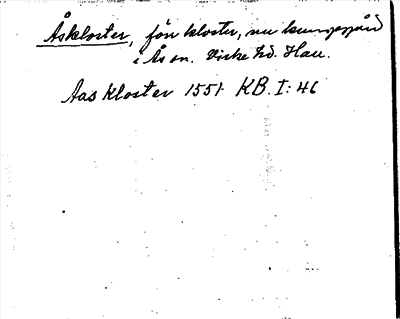 Åskloster, förr kloster, nu kungsgård
i Ås sn. Viske hd. Hall.
Aas kloster 1551 KB. I: 46